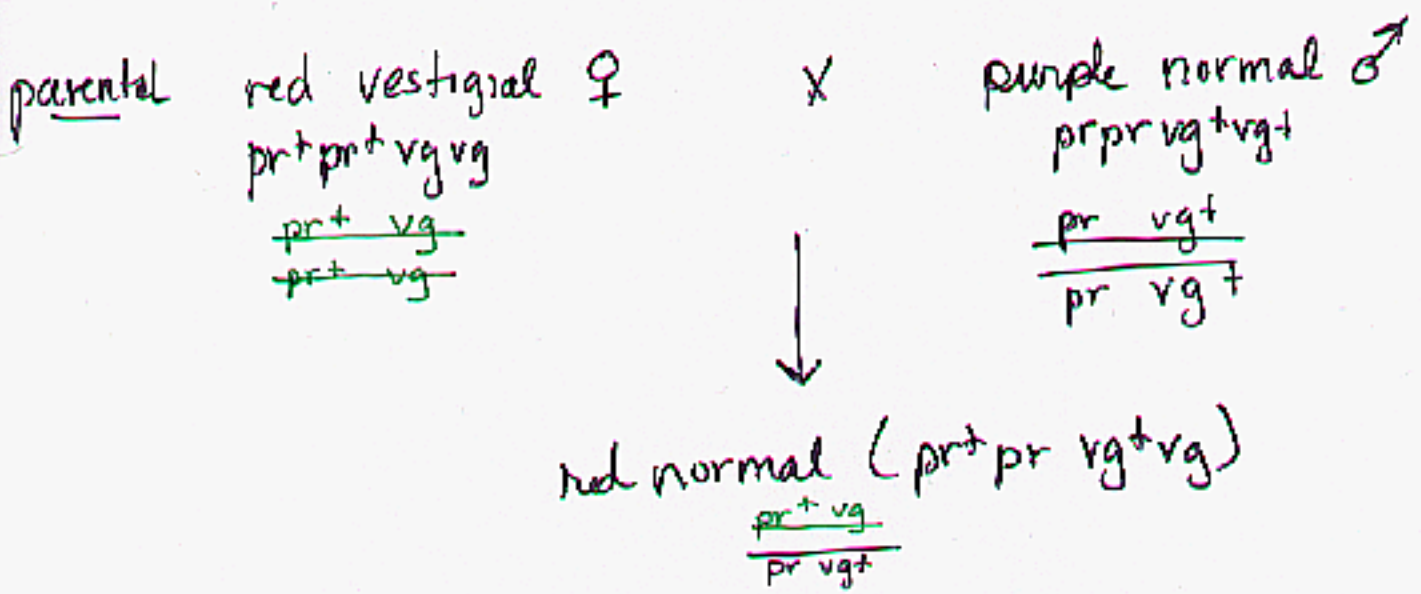 parental red vestigial ♀ X purple normal ♂
pr+pr+ vg vg prpr vg+vg+
pr+ vg pr vg+
pr+ vg pr vg+
red normal (pr+pr vg+vg)
pr+ vg
pr vg+